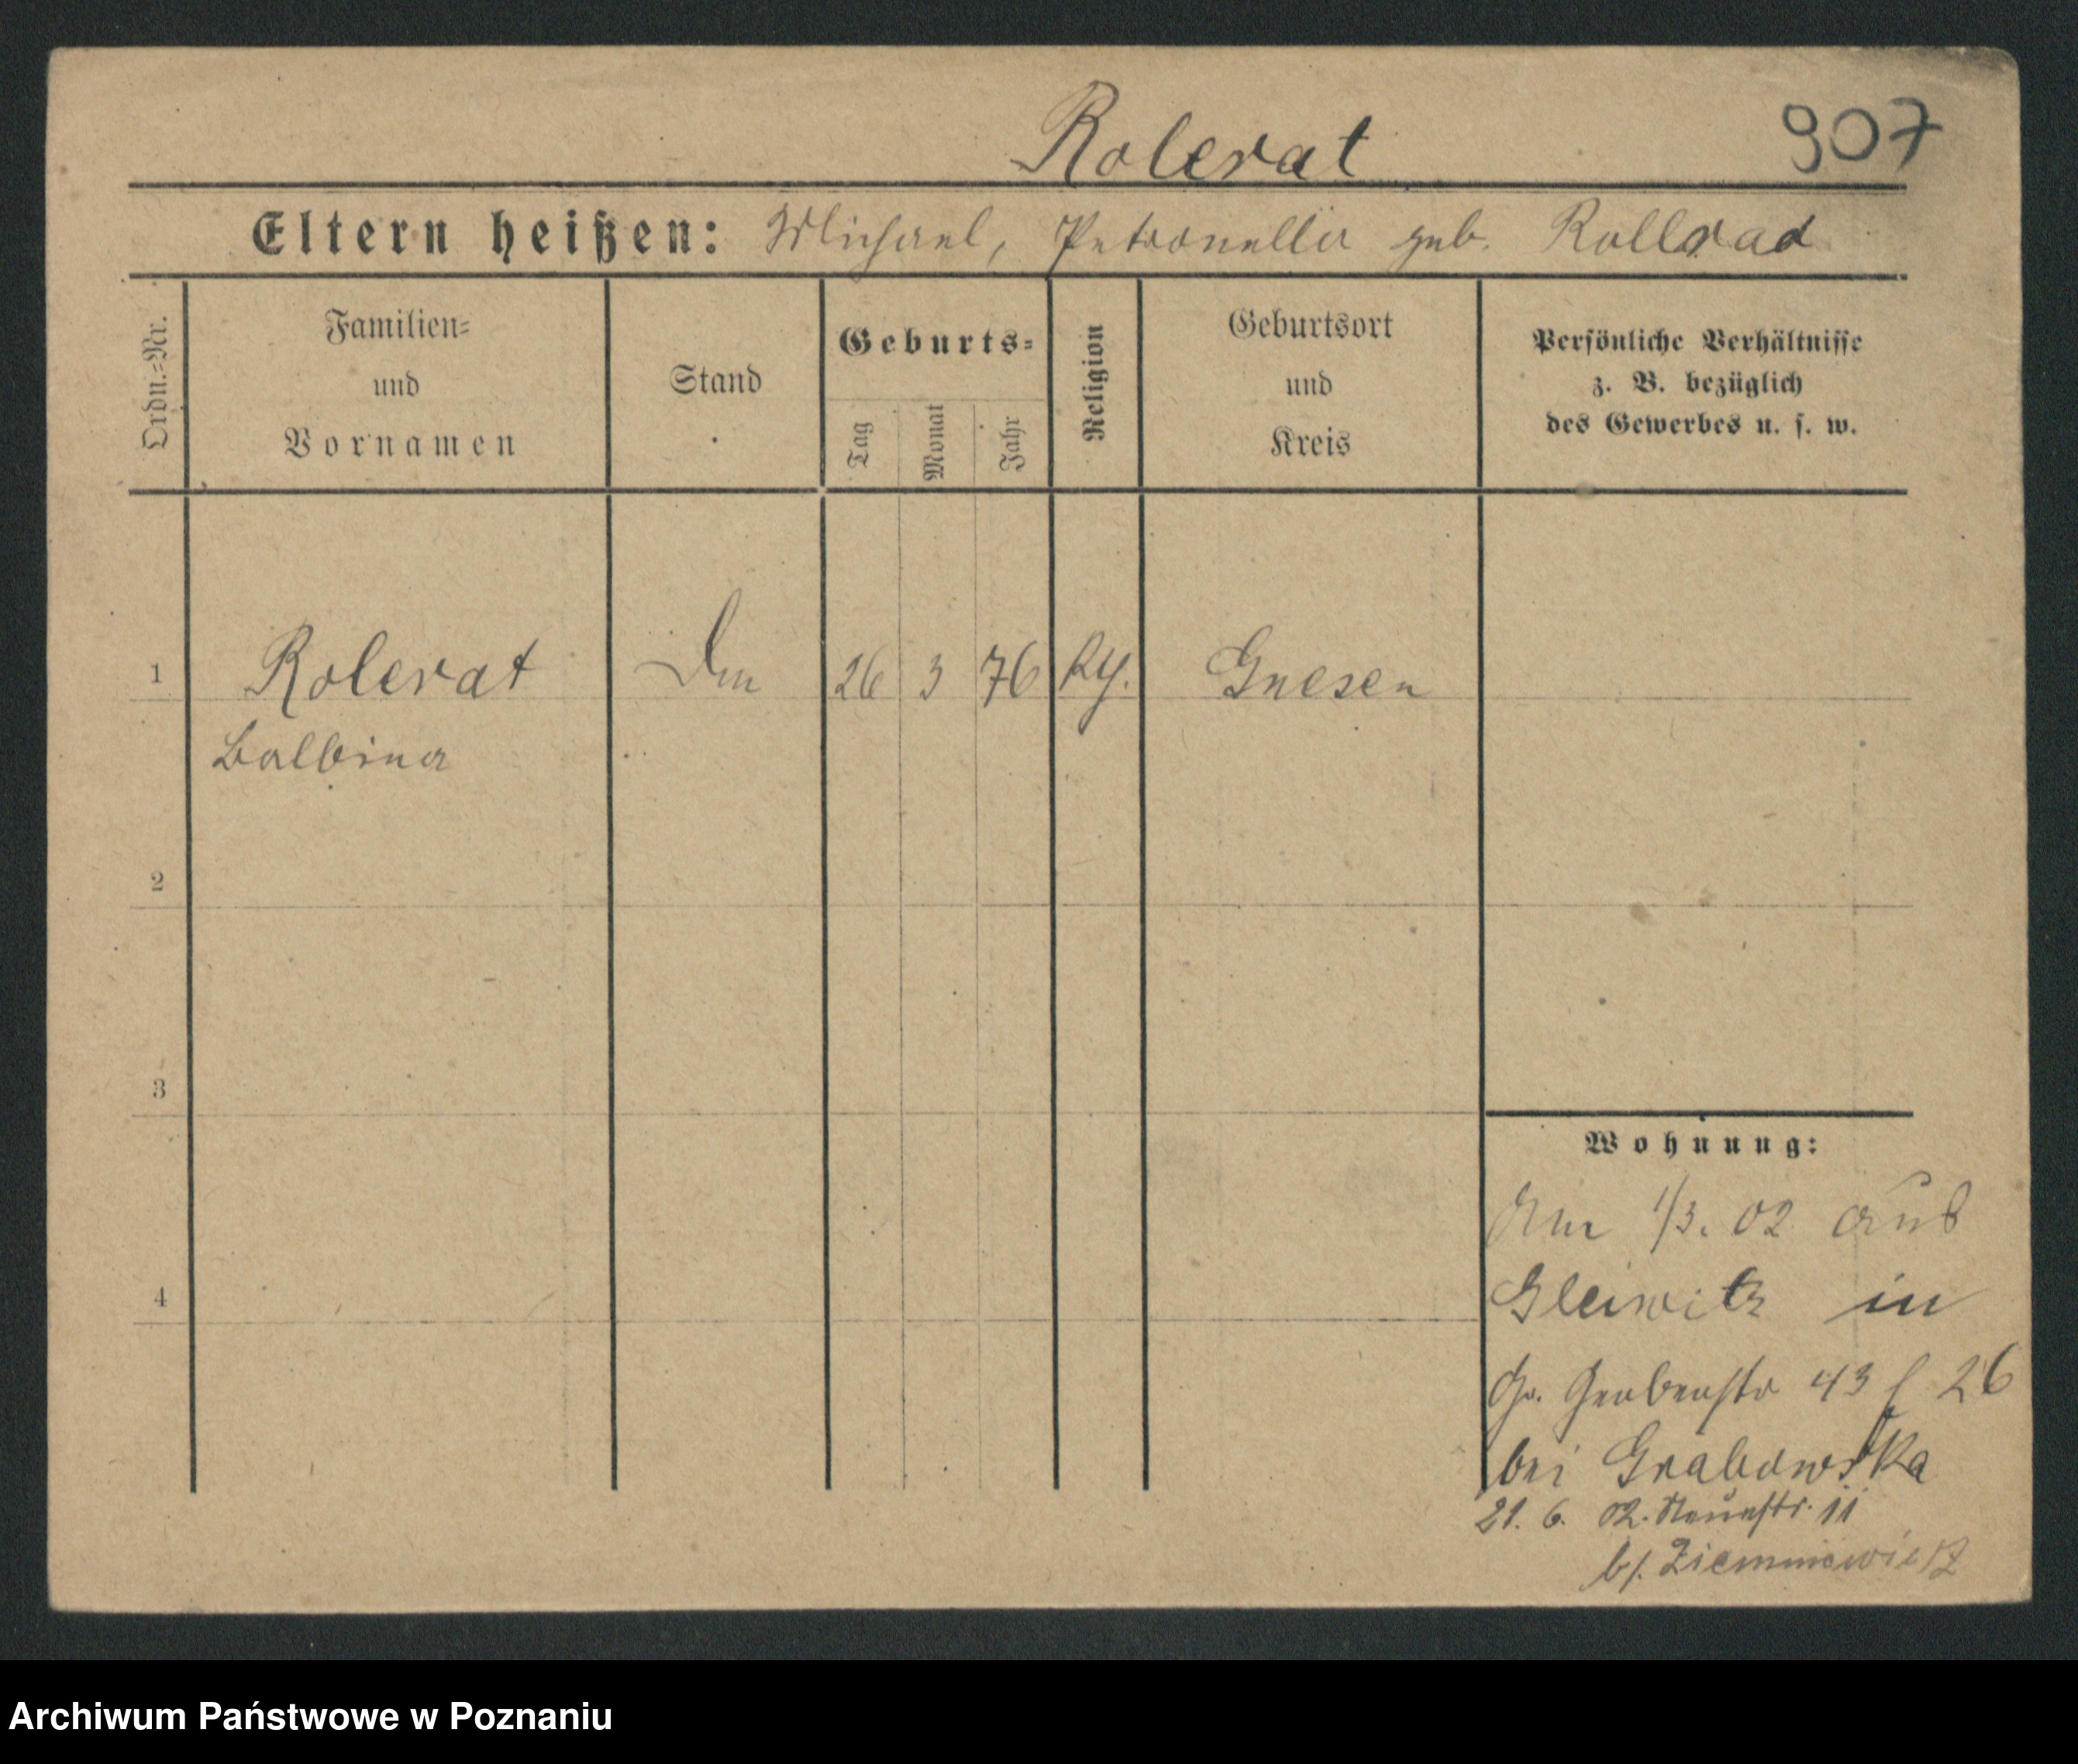 Rolerat 907
Eltern heißen: Michael, Petronella geb. Rollrad
Ordn.=Nr.
Familien=
und
Vornamen
Stand
Geburts=
Tag
Monat
Jahr
Religion
Geburtsort
und
Kreis
Persönliche Verhältnisse
z. B. bezüglich
des Gewerbes u. s. w.
1 Rolerat 26 3 76 Gnesen
Balbina
2
3
4
Wohnung:
Am 1/3. 02 aus
Gleiwitz in
Gr. Gerberstr 43 26
bei Grabowska
21. 6. 02. 11
b/. Ziemniewicz
Archiwum Państwowe w Poznaniu